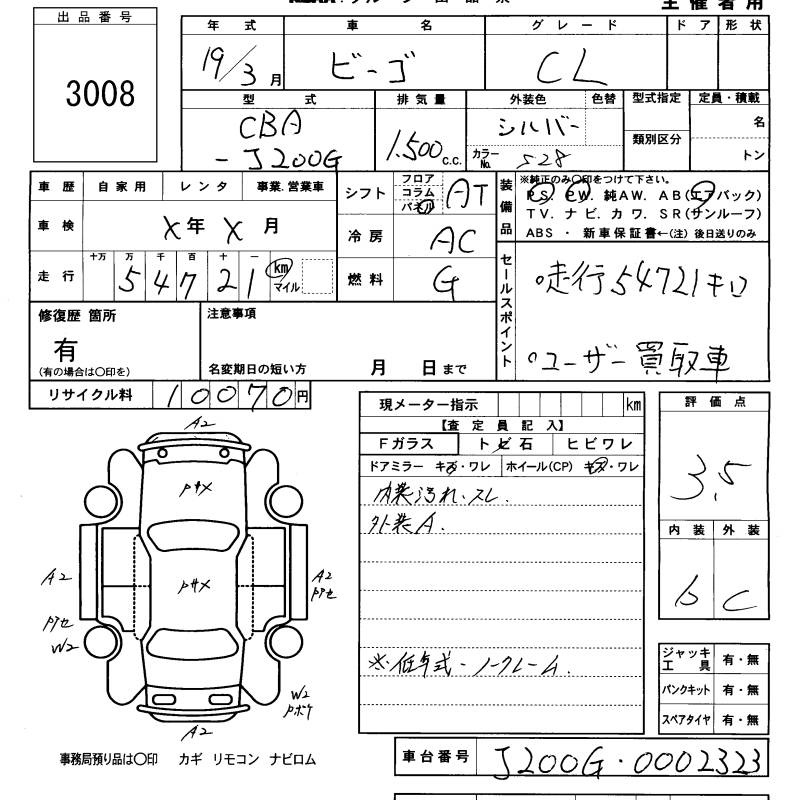 主催者用
出品番号
3008
年式 車名 グレード ドア 形状
19/3月 ビーゴ CL
型式 排気量 外装色 色替 型式指定 定員・積載
CBA-J200G 1,500 c.c. シルバー カラーNo. S28 類別区分 名 トン
車歴 自家用 レンタ 事業.営業車
車検 X年X月
走行 十万 万 千 百 十 一
54721 km マイル
シフト フロア コラム パネル AT
冷房 AC
燃料 G
装備品 ※純正のみ〇印をつけて下さい。
PS. PW. 純AW. AB(エアバック)
TV. ナビ. カワ. SR(サンルーフ)
ABS ・ 新車保証書←(注) 後日送りのみ
セールスポイント
○走行54721キロ
○ユーザー買取車
修復歴 箇所
有
(有の場合は〇印を)
注意事項
名変期日の短い方 月 日まで
リサイクル料 10070円
現メーター指示 km
【査定員記入】
Fガラス トビ石 ヒビワレ
ドアミラー キズ・ワレ ホイール(CP) キズ・ワレ
内装汚れ、スレ.
外装A.
※低年式・ノークレーム.
評価点
3.5
内装 外装
b C
ジャッキ工具 有・無
パンクキット 有・無
スペアタイヤ 有・無
A2
A2
A2
W2
W2
A2
事務局預り品は〇印 カギ リモコン ナビロム
車台番号 J200G・0002323